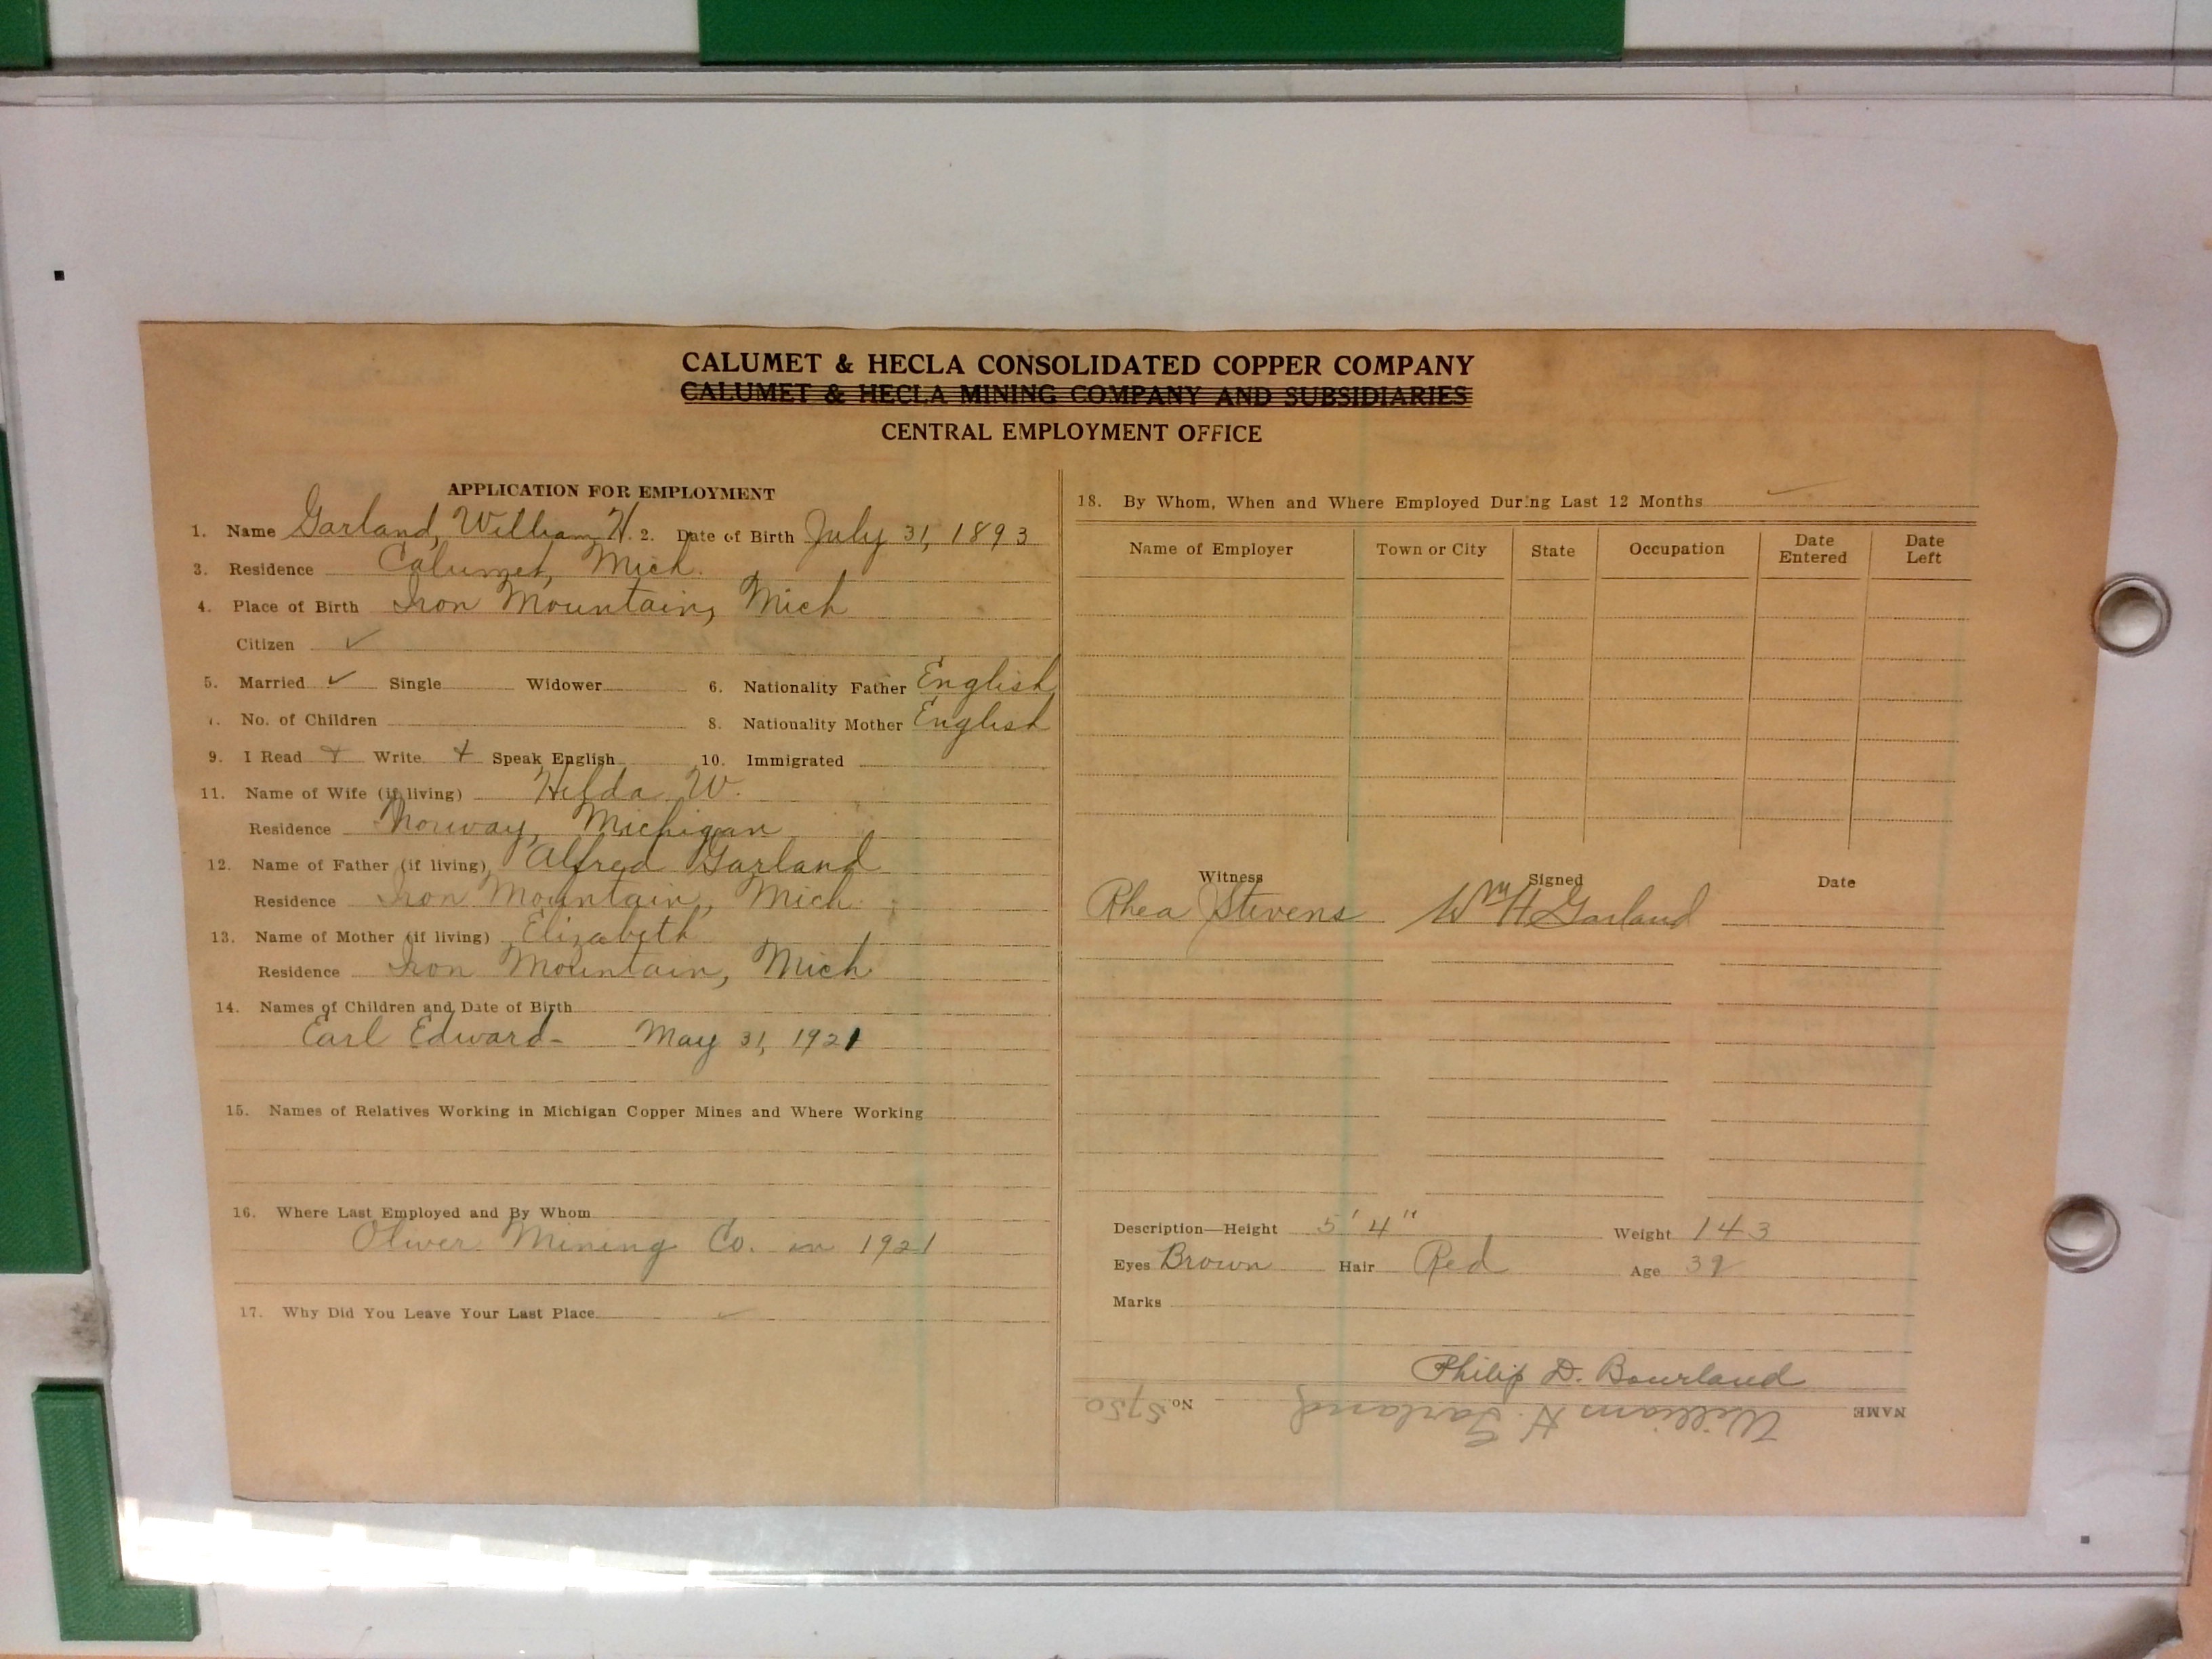 CALUMET & HECLA CONSOLIDATED COPPER COMPANY
CALUMET & HECLA MINING COMPANY AND SUBSIDIARIES
CENTRAL EMPLOYMENT OFFICE
APPLICATION FOR EMPLOYMENT
1. Name Garland, William H. 2. Date of Birth July 31, 1893
3. Residence Calumet, Mich.
4. Place of Birth Iron Mountain, Mich
Citizen ✓
5. Married ✓ Single Widower 6. Nationality Father English
7. No. of Children 8. Nationality Mother English
9. I Read + Write + Speak English 10. Immigrated
11. Name of Wife (if living) Hilda W.
Residence Norway, Michigan
12. Name of Father (if living) Alfred Garland
Residence Iron Mountain, Mich.
13. Name of Mother (if living) Elizabeth
Residence Iron Mountain, Mich
14. Names of Children and Date of Birth
Earl Edward - May 31, 1921
15. Names of Relatives Working in Michigan Copper Mines and Where Working
16. Where Last Employed and By Whom
Oliver Mining Co. in 1921
17. Why Did You Leave Your Last Place ✓
18. By Whom, When and Where Employed During Last 12 Months ✓
Name of Employer Town or City State Occupation Date Entered Date Left
Witness Signed Date
Rhea Stevens Wm H Garland
Description—Height 5' 4" Weight 143
Eyes Brown Hair Red Age 39
Marks
Philip D. Bourland
NAME William H. Garland No. 5750